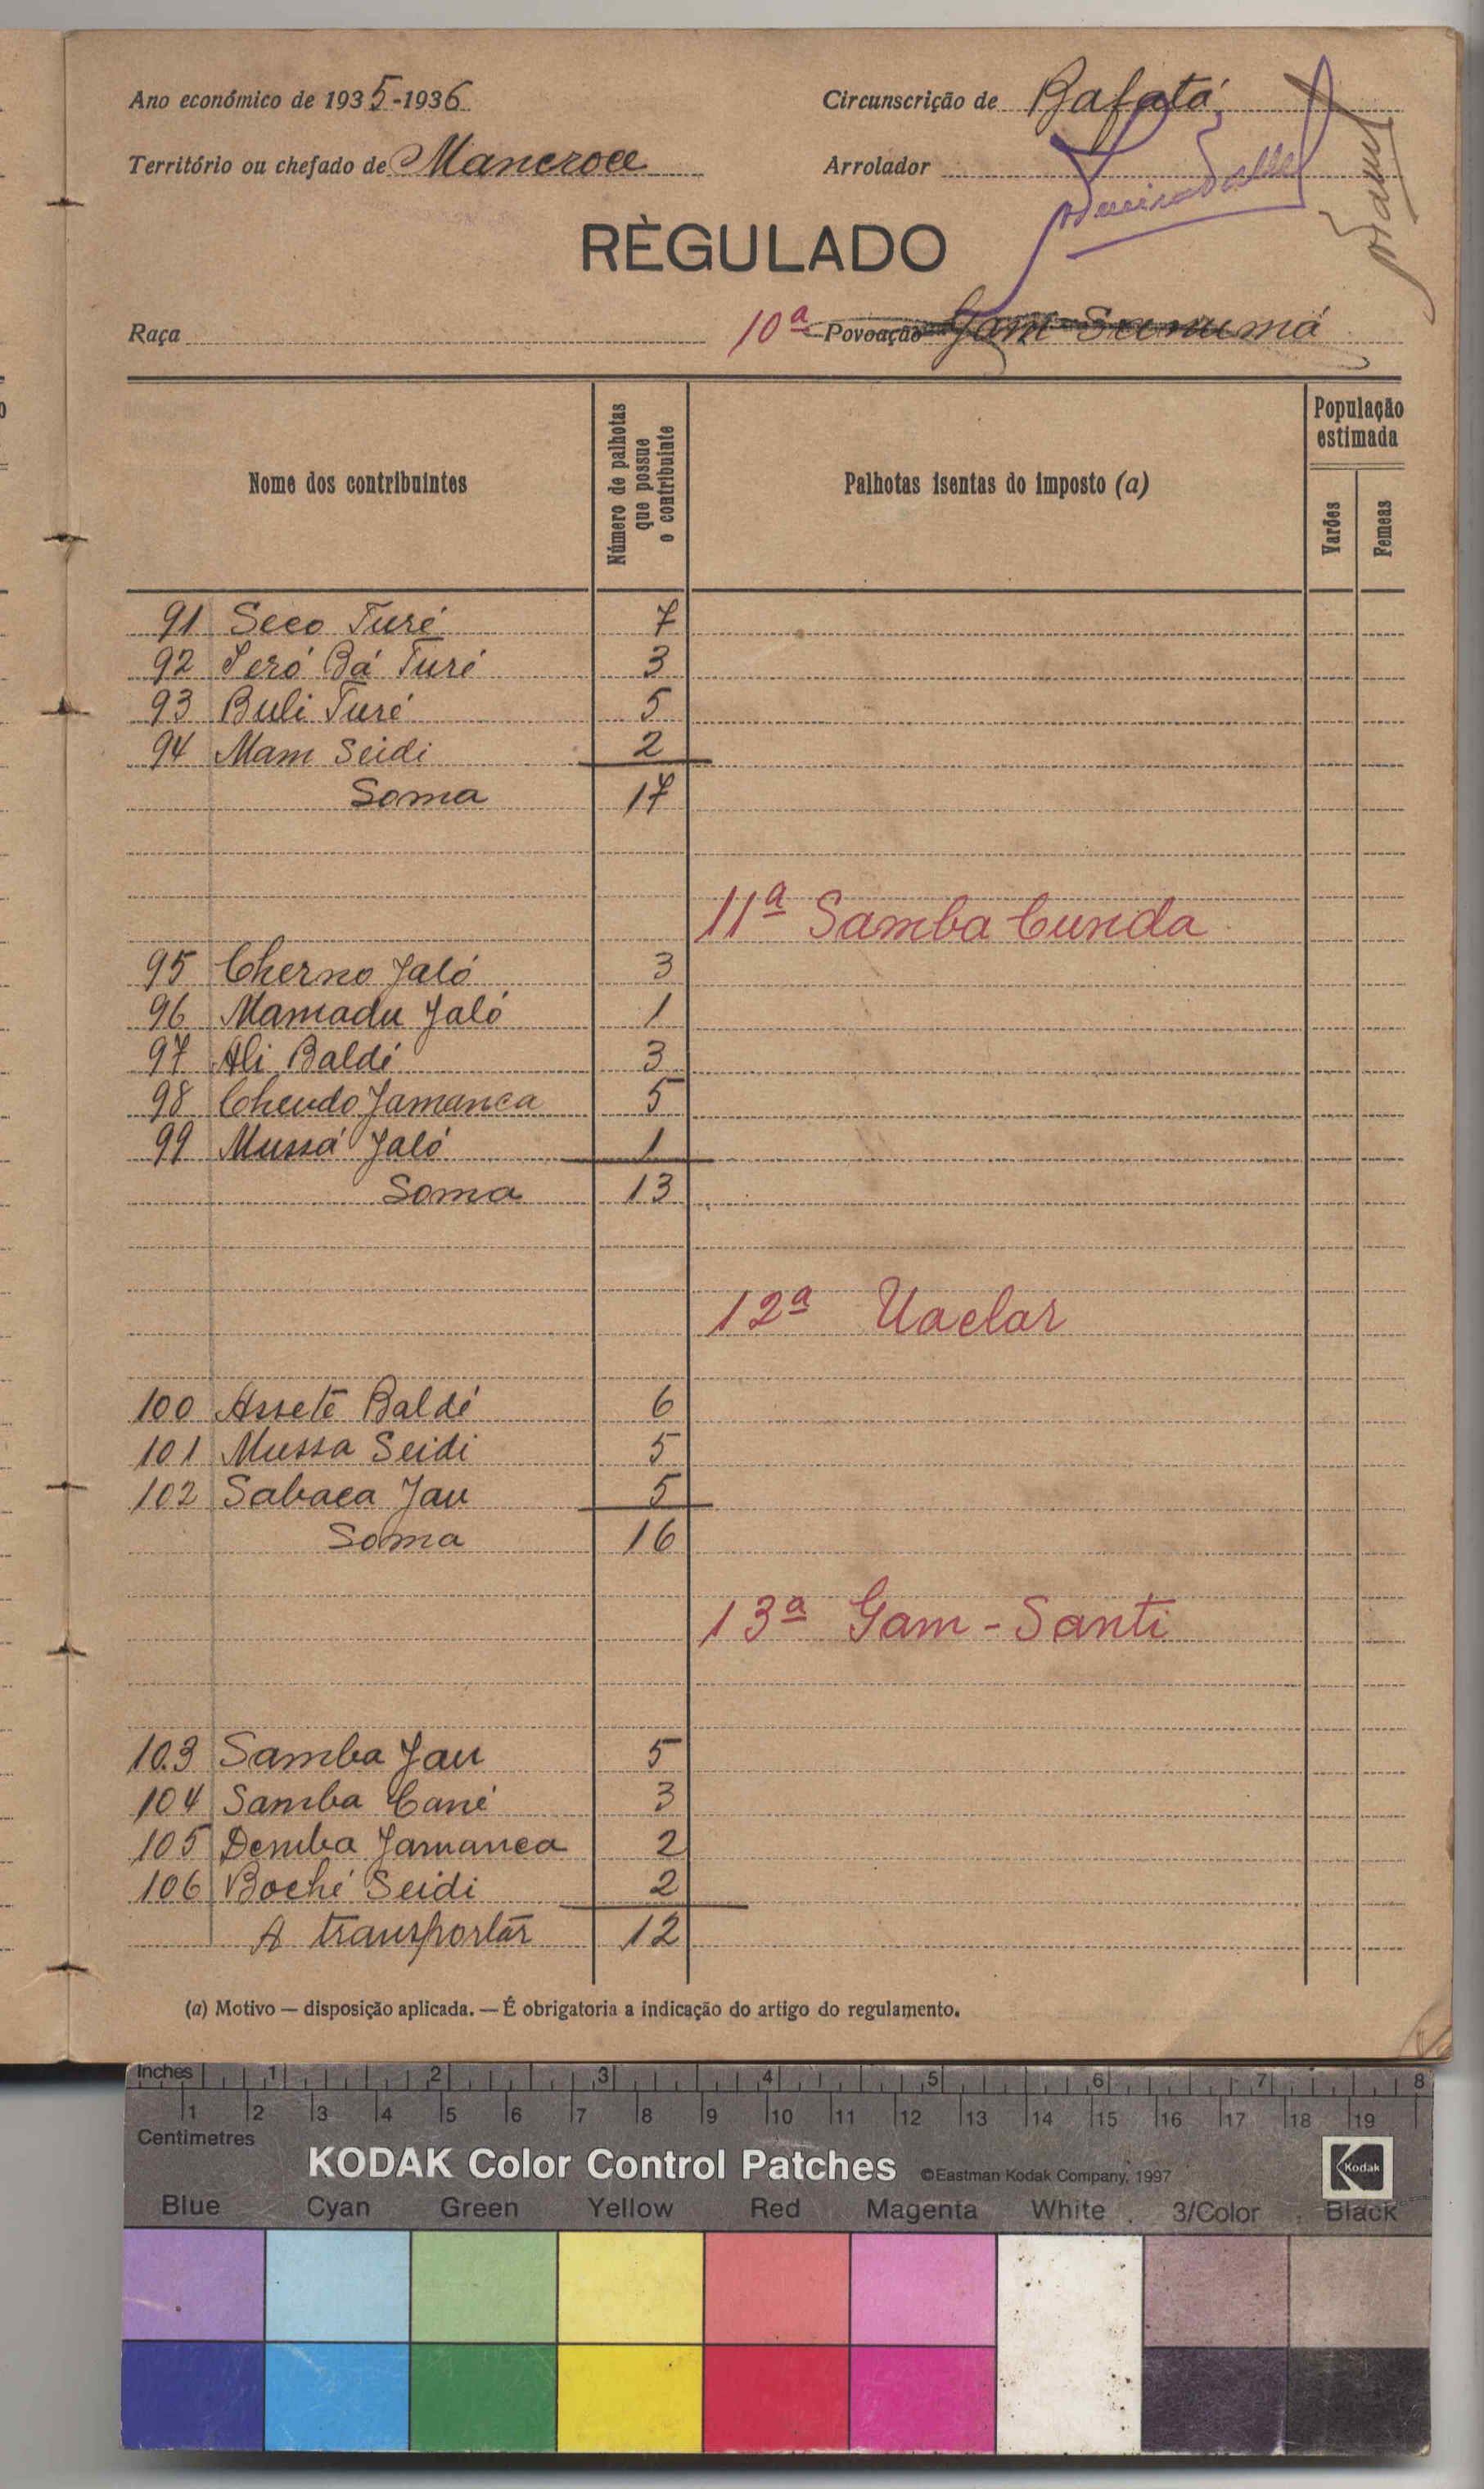 Ano económico de 1935-1936
Circunscrição de Bafatá
Território ou chefado de Mancroce
Arrolador
RÈGULADO
Raça
10ª Povoação Gam-Sanumá
Nome dos contribuintes
Número de palhotas que possue o contribuinte
Palhotas isentas do imposto (a)
População estimada
Varões
Femeas
91 Seco Turé 7
92 Seró Bá Turé 3
93 Buli Turé 5
94 Mam Seidi 2
Soma 17
11ª Samba Cunda
95 Cherno Jaló 3
96 Mamadu Jaló 1
97 Ali Baldé 3
98 Cheudo Jamanca 5
99 Mussá Jaló 1
Soma 13
12ª Uaclar
100 Asseté Baldé 6
101 Mussa Seidi 5
102 Sabaca Jau 5
Soma 16
13ª Gam-Santi
103 Samba Jau 5
104 Samba Cané 3
105 Demba Jamanca 2
106 Boché Seidi 2
A transportar 12
(a) Motivo — disposição aplicada. — É obrigatoria a indicação do artigo do regulamento.
Inches 1 2 3 4 5 6 7 8
1 2 3 4 5 6 7 8 9 10 11 12 13 14 15 16 17 18 19
Centimetres
KODAK Color Control Patches ©Eastman Kodak Company, 1997
Kodak
Blue Cyan Green Yellow Red Magenta White 3/Color Black